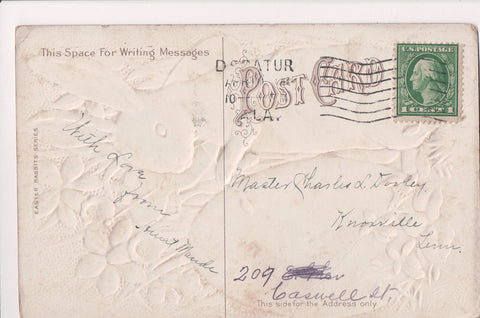 This Space For Writing Messages
DECATUR
10
ALA.
POST CARD
U.S. POSTAGE
1 CENT 1
EASTER RABBITS SERIES
With Love
from
Aunt Maude
Master Charles L Dooley
Knoxville
Tenn.
209
Caswell St.
This side for the Address only